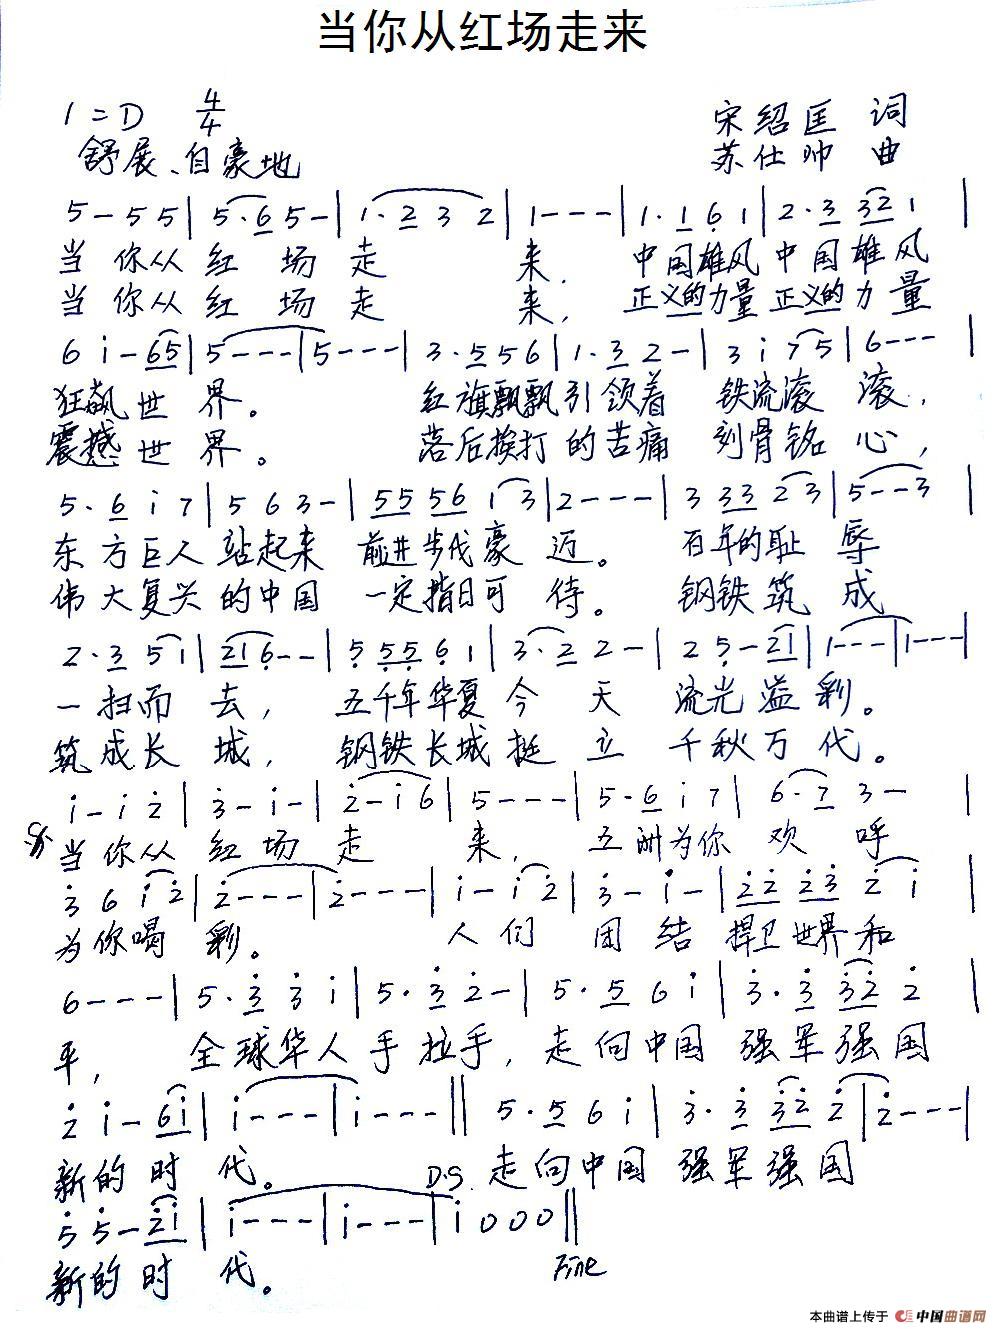 当你从红场走来
1=D 4/4 宋绍匡 词
舒展、自豪地 苏仕帅 曲
5 - 5 5 | 5 · 6 5 - | 1 · 2 3 2 | 1 - - - | 1 · 1 6 1 | 2 · 3 3 2 1 |
当你从红场走来，中国雄风中国雄风
当你从红场走来，正义的力量正义的力量
6 i - 6 5 | 5 - - - | 5 - - - | 3 · 5 5 6 | 1 · 3 2 - | 3 i 7 5 | 6 - - - |
狂飙世界。红旗飘飘引领着铁流滚滚，
震撼世界。落后挨打的苦痛刻骨铭心，
5 · 6 i 7 | 5 6 3 - | 5 5 5 6 1 3 | 2 - - - | 3 3 3 2 3 | 5 - - 3 |
东方巨人站起来前进步伐豪迈。百年的耻辱
伟大复兴的中国一定指日可待。钢铁筑成
2 · 3 5 1 | 2 1 6 - - | 5 5 5 6 1 | 3 · 2 2 - | 2 5 - 2 1 | 1 - - - | 1 - - - |
一扫而去，五千年华夏今天流光溢彩。
筑成长城，钢铁长城挺立千秋万代。
i - i 2 | 3 - i - | 2 - i 6 | 5 - - - | 5 · 6 i 7 | 6 · 7 3 - |
当你从红场走来，五洲为你欢呼
3 6 i 2 | 2 - - - | 2 - - - | i - i 2 | 3 - i - | 2 2 2 3 2 i |
为你喝彩。人们团结捍卫世界和
6 - - - | 5 · 3 3 i | 5 · 3 2 - | 5 · 5 6 i | 3 · 3 3 2 2 |
平，全球华人手拉手，走向中国强军强国
2 i - 6 i | i - - - | i - - - || 5 · 5 6 i | 3 · 3 3 2 2 | 2 - - - |
新的时代。D.S. 走向中国强军强国
5 5 - 2 i | i - - - | i - - - | i 0 0 0 ||
新的时代。 Fine
本曲谱上传于 中国曲谱网